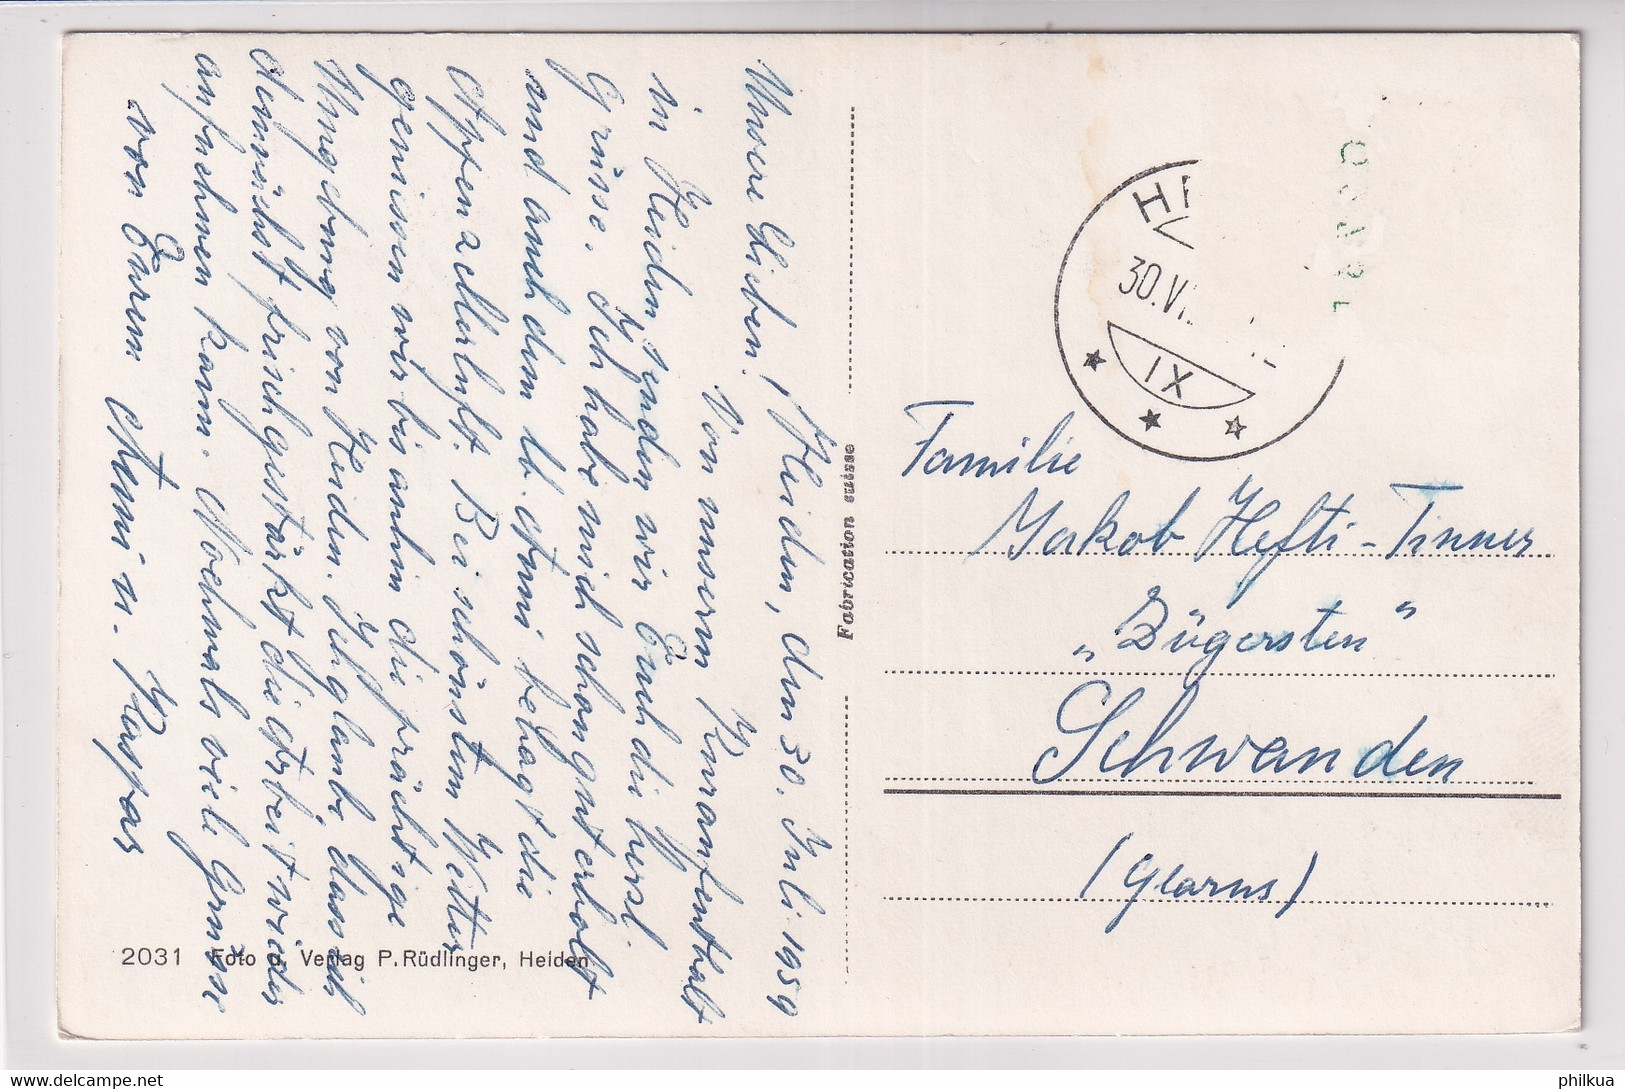 Heiden, den 30. Juli 1959
Unsere Lieben!
Von unserm Kuraufenthalt
in Heiden senden wir Euch die herzl.
Grüsse. Ich habe mich schon gut erholt
und auch dem lb. Anni behagt die
Appenzellerluft. Bei schönstem Wetter
geniessen wir bis anhin die prächtige
Umgebung von Heiden. Ich glaube dass ich
demnächst frisch gestärkt die Arbeit wieder
aufnehmen kann. Nochmals viele Grüsse
von Eurem Anni u. Kaspar
2031 Foto u. Verlag P. Rüdlinger, Heiden
Fabrication suisse
30.VI
IX
Familie
Jakob Hefti-Tinner
„Zügersten"
Schwanden
(Glarus)
philkua
delcampe.net